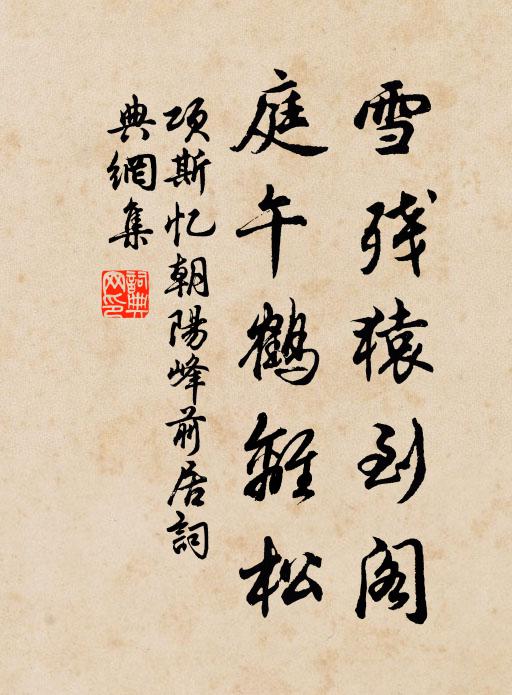 雪残猿到阁
庭午鹤離松
项斯忆朝陽峰前居詞
典網集
詞典网印